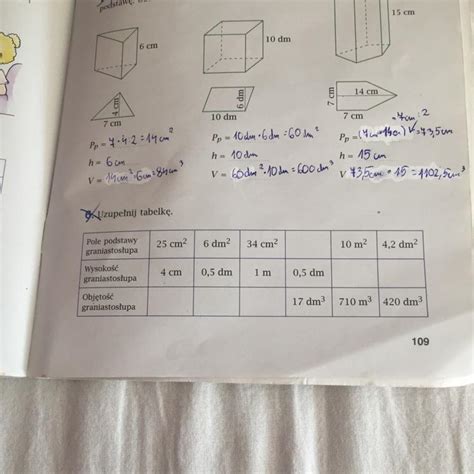 podstawę.
15 cm
6 cm
10 dm
4 cm
7 cm
6 dm
10 dm
7 cm
14 cm
7 cm
Pp = 7·4:2=14cm²
h = 6cm
V = 14cm²·6cm=84cm³
Pp = 10dm·6dm=60dm²
h = 10dm
V = 60dm²·10dm=600dm³
h = 15cm
V 73,5cm · 15 = 1102,5cm³
Uzupełnij tabelkę.
Pole podstawy graniastosłupa 25 cm² 6 dm² 34 cm² 10 m² 4,2 dm²
Wysokość graniastosłupa 4 cm 0,5 dm 1 m 0,5 dm
Objętość graniastosłupa 17 dm³ 710 m³ 420 dm³
109